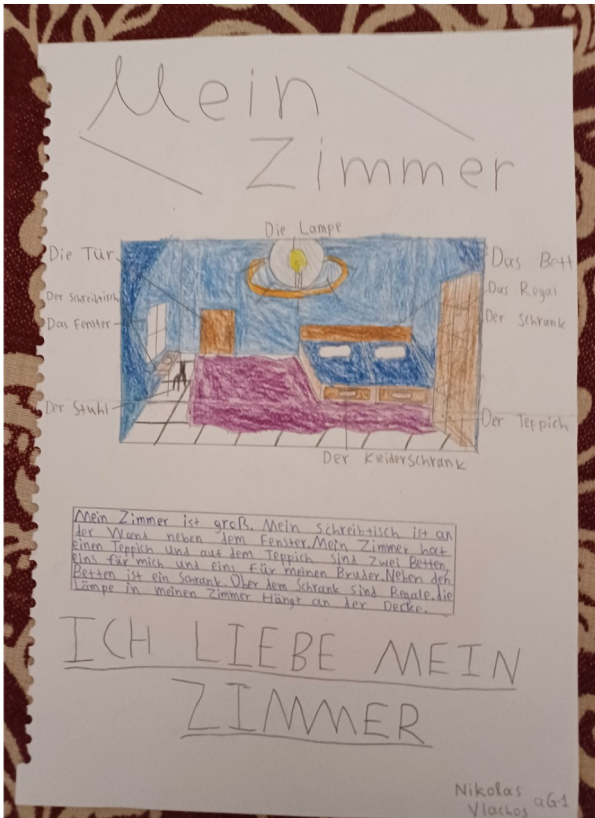 Mein
Zimmer
Die Lampe
Die Tür
Das Bett
Der Schreibtisch
Das Regal
Das Fenster
Der Schrank
Der Stuhl
Der Teppich
Der Kleiderschrank
Mein Zimmer ist groß. Mein Schreibtisch ist an
der Wand neben dem Fenster. Mein Zimmer hat
einen Teppich und auf dem Teppich sind zwei Betten,
eins für mich und eins für meinen Bruder. Neben den
Betten ist ein Schrank. Über dem Schrank sind Regale. die
Lampe in meinen Zimmer Hängt an der Decke.
ICH LIEBE MEIN
ZIMMER
Nikolas aG1
Vlachos